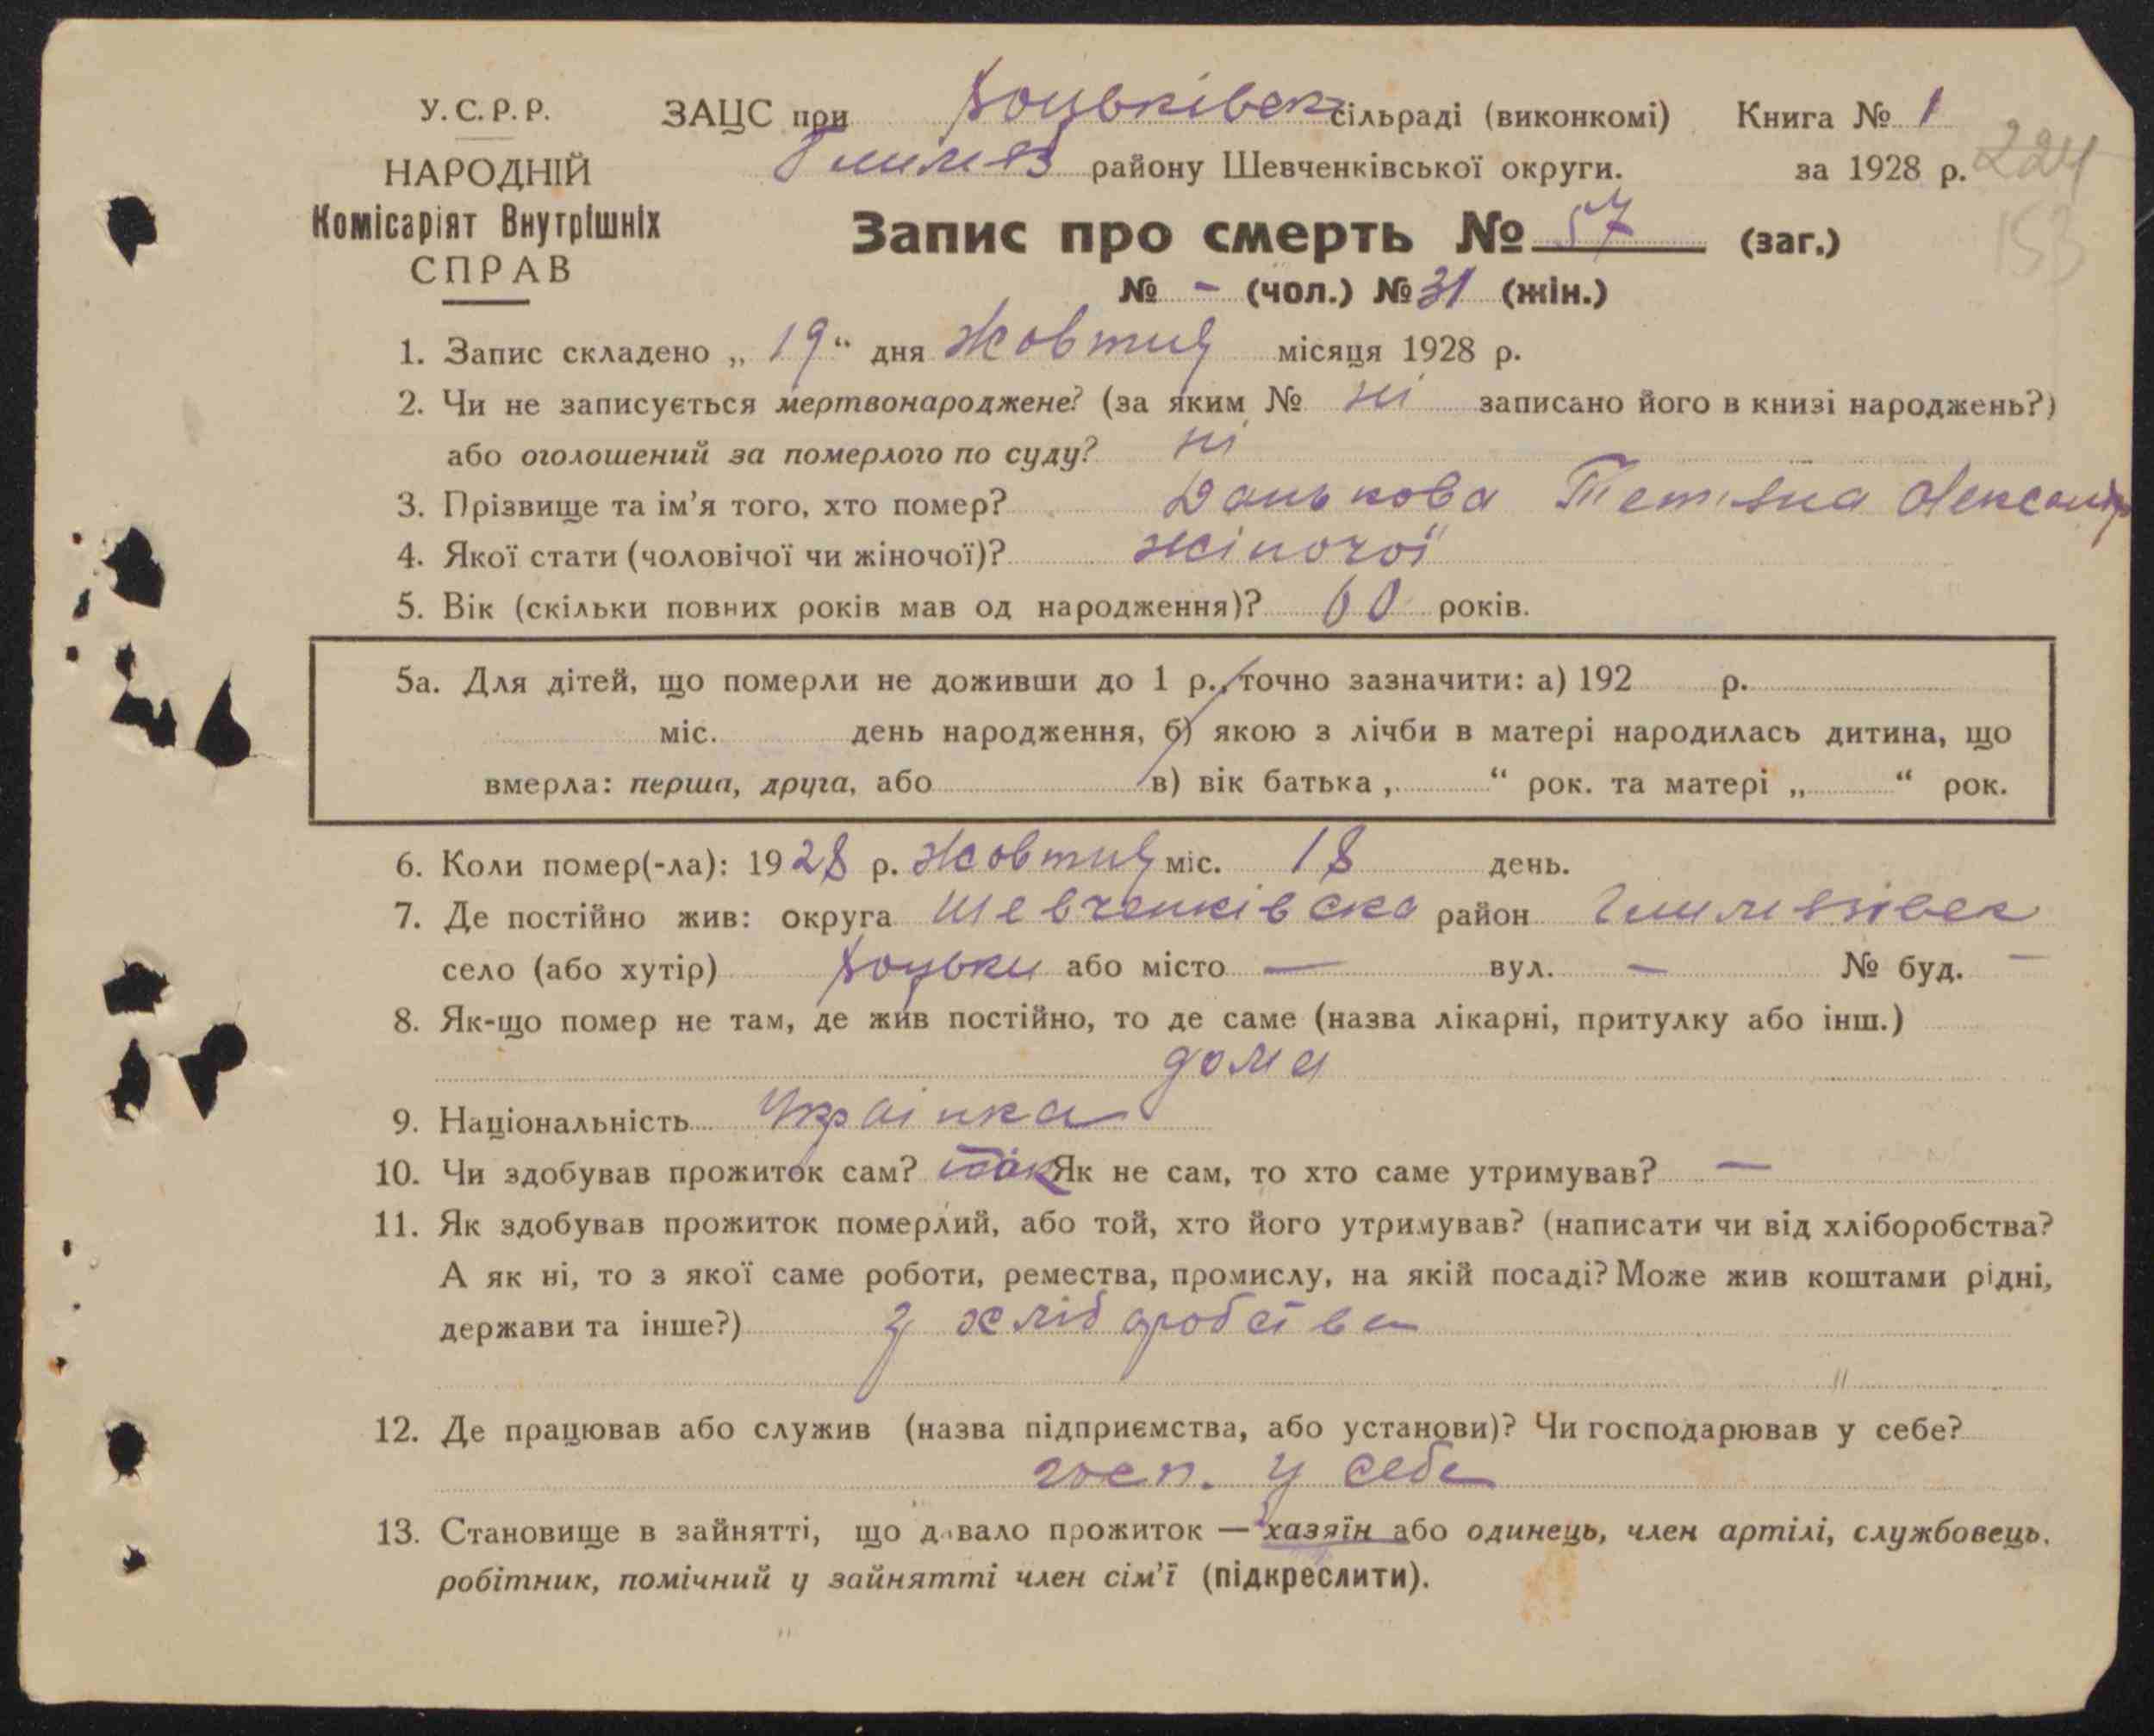 У.С.Р.Р. ЗАЦС при Боцьківськ сільраді (виконкомі) Книга № 1
Гмиляз району Шевченківської округи. за 1928 р. 224
НАРОДНІЙ
Комісаріят Внутрішніх
СПРАВ
153
Запис про смерть № 57 (заг.)
№ - (чол.) № 31 (жін.)
1. Запис складено „ 19 “ дня Жовтня місяця 1928 р.
2. Чи не записується мертвонароджене? (за яким № ні записано його в книзі народжень?)
або оголошений за померлого по суду? ні
3. Прізвище та ім’я того, хто помер? Данькова Тетяна Олександр
4. Якої стати (чоловічої чи жіночої)? жіночої
5. Вік (скільки повних років мав од народження)? 60 років.
5а. Для дітей, що померли не доживши до 1 р., точно зазначити: а) 192 р.
міс. день народження, б) якою з лічби в матері народилась дитина, що
вмерла: перша, друга, або в) вік батька „ “ рок. та матері „ “ рок.
6. Коли помер(-ла): 1928 р. Жовтня міс. 18 день.
7. Де постійно жив: округа Шевченківська район Гмилязівск
село (або хутір) Боцьки або місто — вул. — № буд. —
8. Як-що помер не там, де жив постійно, то де саме (назва лікарні, притулку або інш.)
дома
9. Національність Украінка
10. Чи здобував прожиток сам? так Як не сам, то хто саме утримував? —
11. Як здобував прожиток померлий, або той, хто його утримував? (написати чи від хліборобства?
А як ні, то з якої саме роботи, ремества, промислу, на якій посаді? Може жив коштами рідні,
держави та інше?) з хліборобства
12. Де працював або служив (назва підприємства, або установи)? Чи господарював у себе?
госп. у себе
13. Становище в зайнятті, що давало прожиток — хазяїн або одинець, член артілі, службовець,
робітник, помічний у зайнятті член сім’ї (підкреслити).